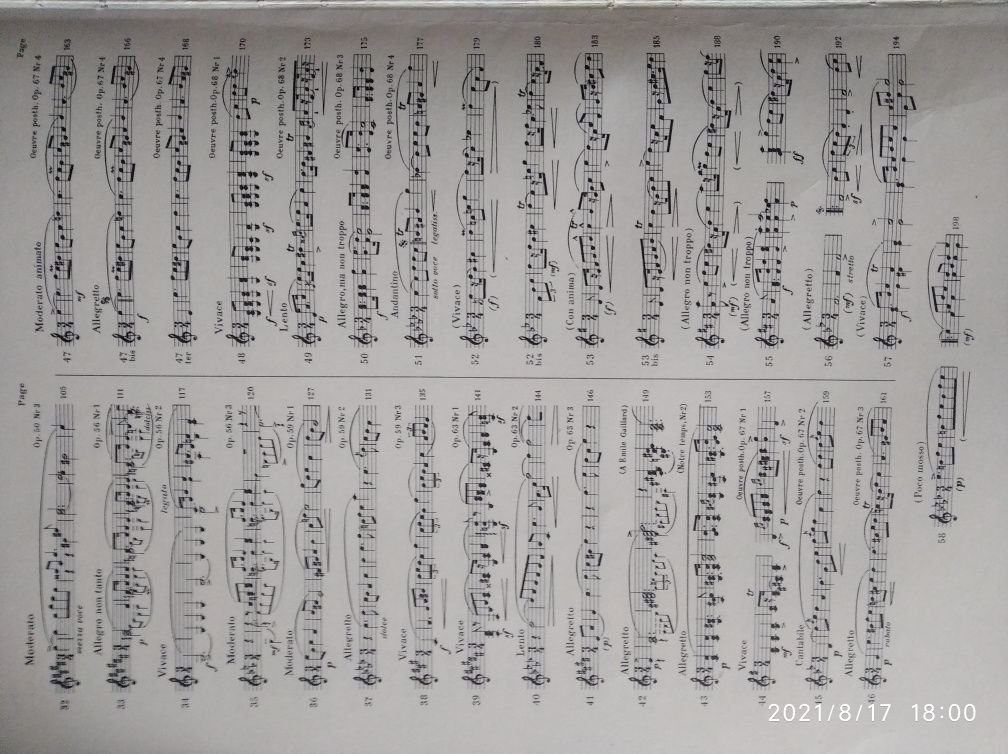 Page
Moderato
Op. 50 Nr 3
32
105
mezza voce
Allegro non tanto
Op. 56 Nr 1
33
111
p
dolciss.
Vivace
Op. 56 Nr 2
legato
34
117
f
Moderato
Op. 56 Nr 3
35
120
mf
Moderato
Op. 59 Nr 1
36
127
p
Allegretto
Op. 59 Nr 2
37
131
dolce
Vivace
Op. 59 Nr 3
38
135
f
Vivace
Op. 63 Nr 1
39
141
sf
sf
Lento
Op. 63 Nr 2
40
144
Allegretto
Op. 63 Nr 3
41
146
(p)
Allegretto
(A Emile Gaillard)
42
149
Allegretto
(Notre temps, Nr 2)
43
153
p
Vivace
Oeuvre posth. Op. 67 Nr 1
tr
44
157
mf
f
p
sf
Cantabile
Oeuvre posth. Op. 67 Nr 2
45
159
p
Allegretto
Oeuvre posth. Op. 67 Nr 3
46
161
p
rubato
Page
Moderato animato
Oeuvre posth. Op. 67 Nr 4
47
163
mf
Allegretto
Oeuvre posth. Op. 67 Nr 4
47 bis
166
f
Oeuvre posth. Op. 67 Nr 4
47 ter
168
Vivace
Oeuvre posth. Op. 68 Nr 1
48
170
f
sf
sf
p
Lento
Oeuvre posth. Op. 68 Nr 2
tr
tr
49
173
p
Allegro, ma non troppo
Oeuvre posth. Op. 68 Nr 3
50
175
f
Andantino
Oeuvre posth. Op. 68 Nr 4
tr
51
177
sotto voce
legatiss.
(Vivace)
52
179
(f)
tr
tr
52 bis
180
(mf)
(Con anima)
tr
tr
53
183
(f)
tr
tr
53 bis
185
(Allegro non troppo)
54
188
(mf)
(Allegro non troppo)
55
190
f
p
ff
(Allegretto)
56
192
(mf)
stretto
sf
(Vivace)
tr
57
194
f
(Poco mosso)
58
198
(p)
(mf)
2021/8/17 18:00